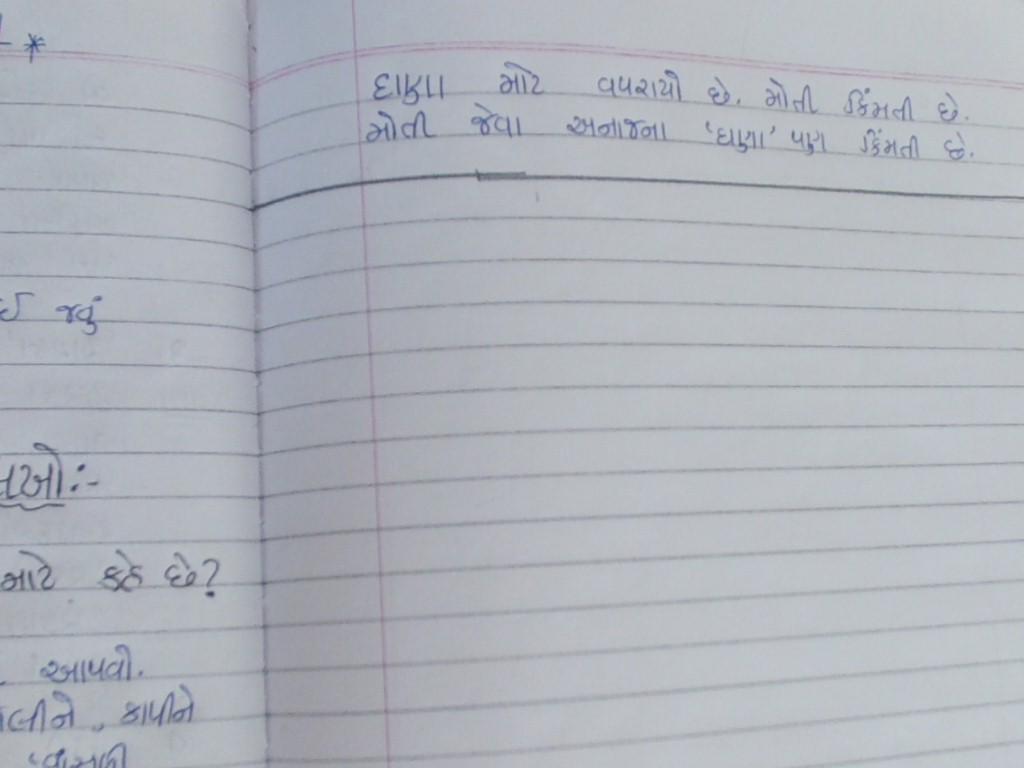 *
ઈ જવું
લખો:-
માટે કહે છે?
આપવી.
લીને, કાપીને
દાણા માટે વપરાયો છે. મોતી કિંમતી છે.
મોતી જેવા અનાજના 'દાણા' પણ કિંમતી છે.